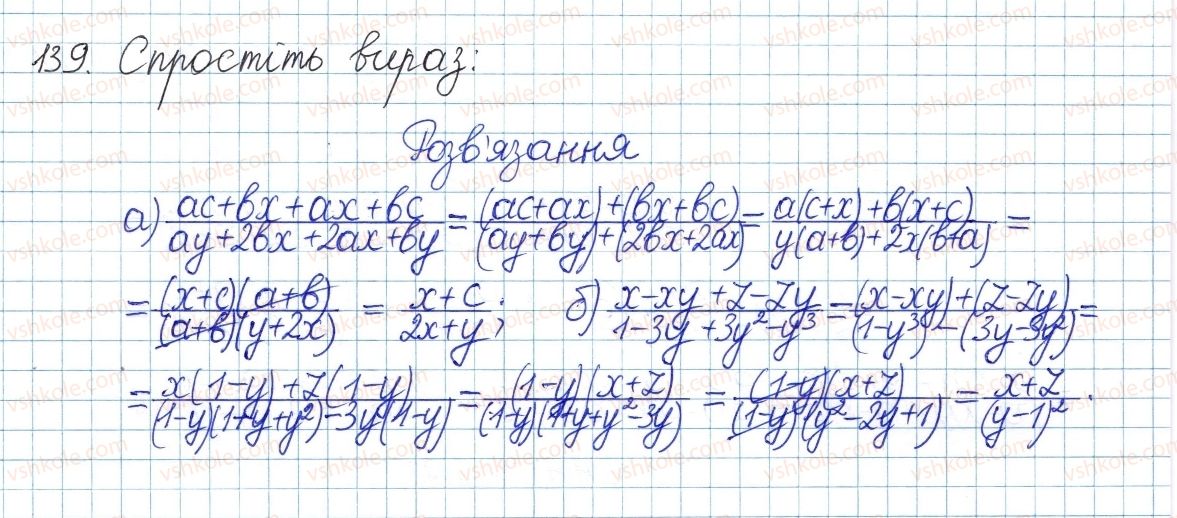 139. Спростіть вираз:
Розв'язання
а) (ac+bx+ax+bc)/(ay+2bx+2ax+by) = ((ac+ax)+(bx+bc))/((ay+by)+(2bx+2ax)) = (a(c+x)+b(x+c))/(y(a+b)+2x(b+a)) =
= ((x+c)(a+b))/((a+b)(y+2x)) = (x+c)/(2x+y); б) (x-xy+z-zy)/(1-3y+3y²-y³) = ((x-xy)+(z-zy))/((1-y³)-(3y-3y²)) =
= (x(1-y)+z(1-y))/((1-y)(1+y+y²)-3y(1-y)) = ((1-y)(x+z))/((1-y)(1+y+y²-3y)) = ((1-y)(x+z))/((1-y)(y²-2y+1)) = (x+z)/(y-1)².